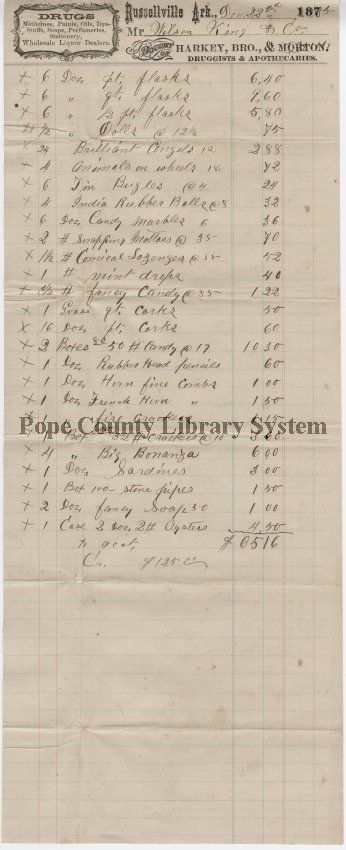 DRUGS
Medicines, Paints, Oils, Dye-
Stuffs, Soaps, Perfumeries,
Stationery,
Wholesale Liquor Dealers.
Russellville Ark., Dec. 22nd 1875
Mr. Wilson King & Co.
HARKEY, BRO., & MORTON,
DRUGGISTS & APOTHECARIES.
x 6 Doz pt. flasks 6,40
x 6 " qt. flasks 9,60
x 6 " ½ pt. flasks 5,80
½ " Dolls @ 12½ 75
x 24 Brilliant Angels 12 2.88
x 4 Animals on wheels 18 72
x 6 Tin Bugles @ 4 24
x 4 India Rubber Balls @ 8 32
x 6 Doz Candy Marbles 6 36
x 2 # Snapping Mottoes @ 35 70
x 1½ # Conical Lozenges @ 35 52
x 1 # mint drops 40
x 3½ # fancy Candy @ 35 1 22
x 1 Gross qt. corks 50
x 16 Doz, pt. Corks 60
x 2 Boxes 50 # Candy @ 17 10 30
x 1 Doz Rubber Head pencils 60
x 1 Doz, Horn fine Combs 1 00
x 1 Doz French Horn " 1 50
x 1 " fire Crackers 15
Pope County Library System
1 Box 32 # Crackers @ 10
x 4 " Big Bonanza 6 00
x 1 Doz Sardines 3 00
x 1 Box 100 stone pipes 1 50
x 2 Doz fancy Soap 50 1 00
x 1 Case 2 Doz 2# Oysters 4,50
To acct, $ 6516
Cr. $125 00